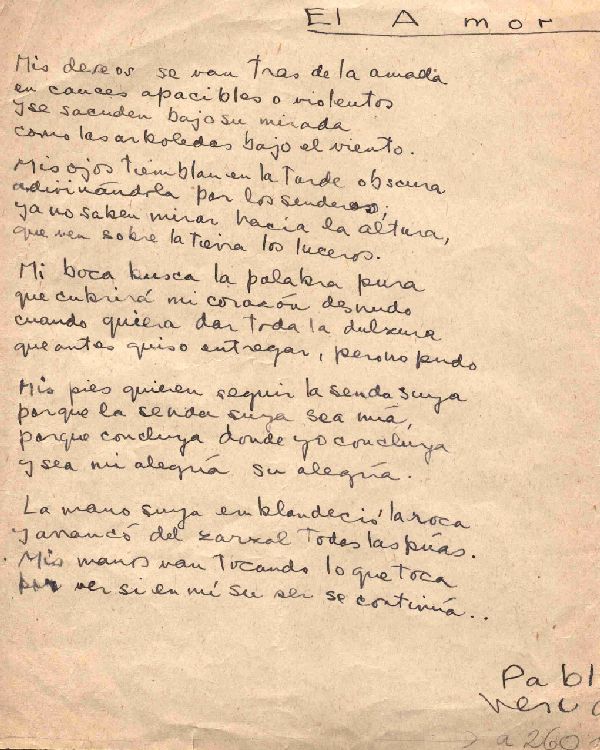 El Amor
Mis deseos se van tras de la amada
en cauces apacibles o violentos
y se sacuden bajo su mirada
como las arboledas bajo el viento.
Mis ojos tiemblan en la tarde obscura
adivinándola por los senderos;
ya no saben mirar hacia la altura,
que ven sobre la tierra los luceros.
Mi boca busca la palabra pura
que cubrirá mi corazón desnudo
cuando quiera dar toda la dulzura
que antes quiso entregar, pero no pudo
Mis pies quieren seguir la senda suya
porque la senda suya sea mía,
porque concluya donde yo concluya
y sea mi alegría su alegría.
La mano suya emblandeció la roca
y arrancó del zarzal todas las púas.
Mis manos van tocando lo que toca
por ver si en mí su ser se continúa..
Pabl
Neru
a 260